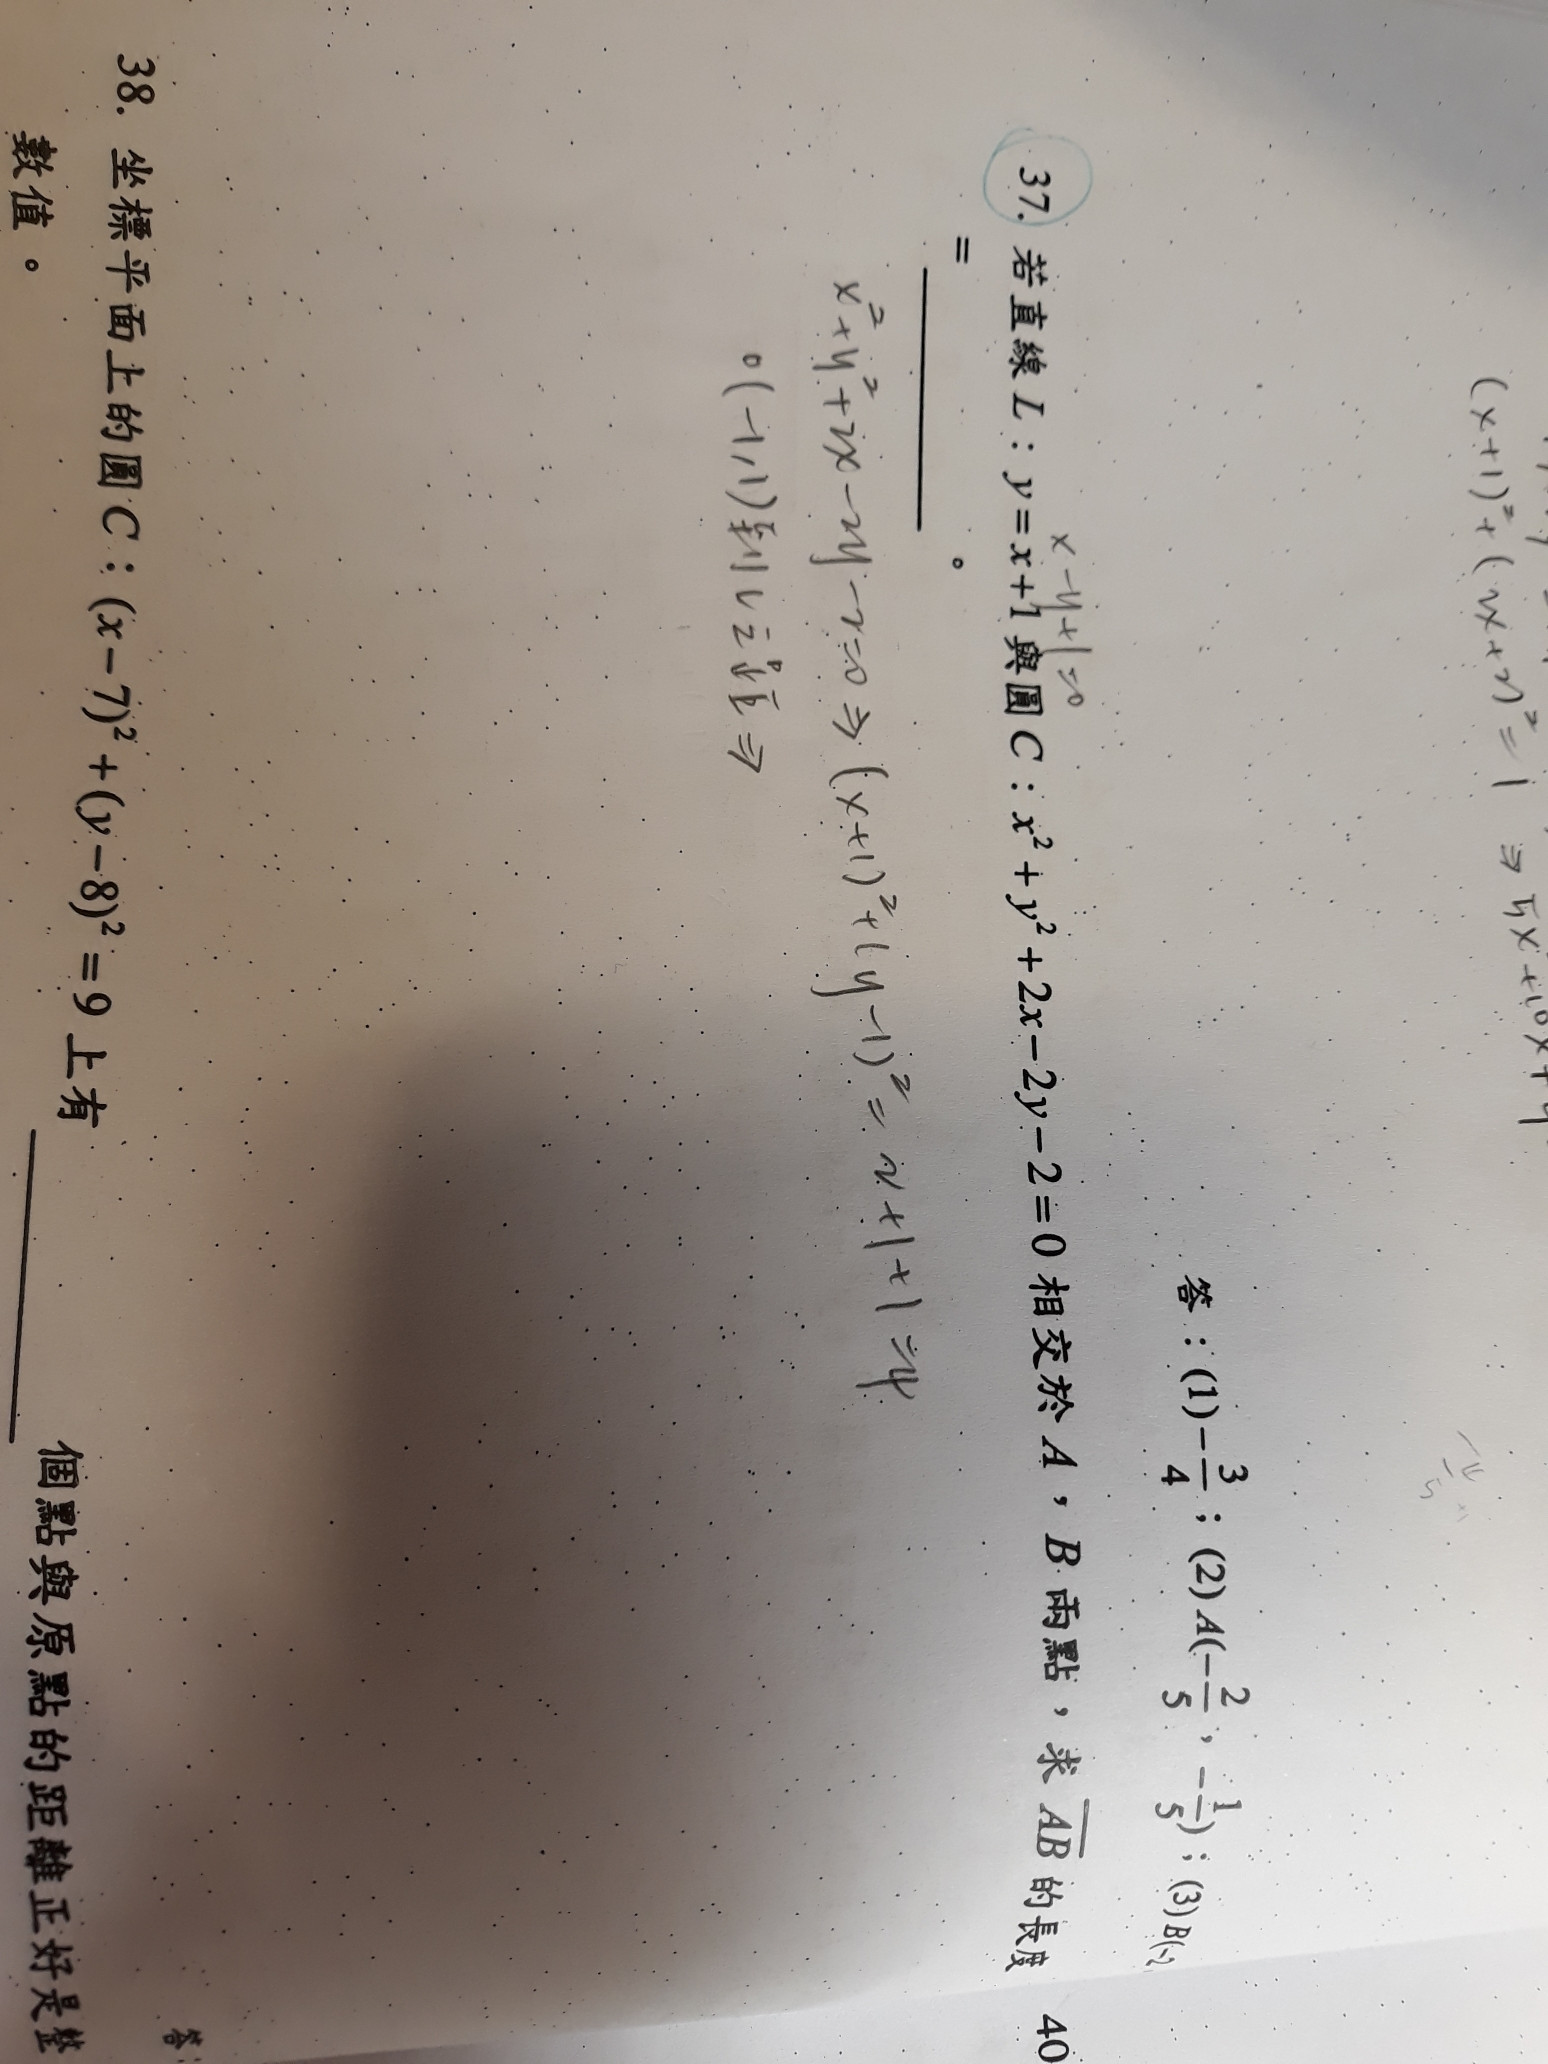 (x+1)²+(2x+2)²=1 ⇒ 5x+10x+4
答：(1)-3/4；(2)A(-2/5，-1/5)；(3)B(-2
x-y+1=0
37. 若直線 L：y=x+1與圓 C：x²+y²+2x-2y-2=0 相交於 A，B 兩點，求 AB 的長度
=________。
40
x²+y²+2x-2y-2=0 ⇒ (x+1)²+(y-1)²=2+1+1=4
O(-1,1)到L之距 ⇒
答：
38. 坐標平面上的圓 C：(x-7)²+(y-8)²=9 上有________個點與原點的距離正好是整
數值。